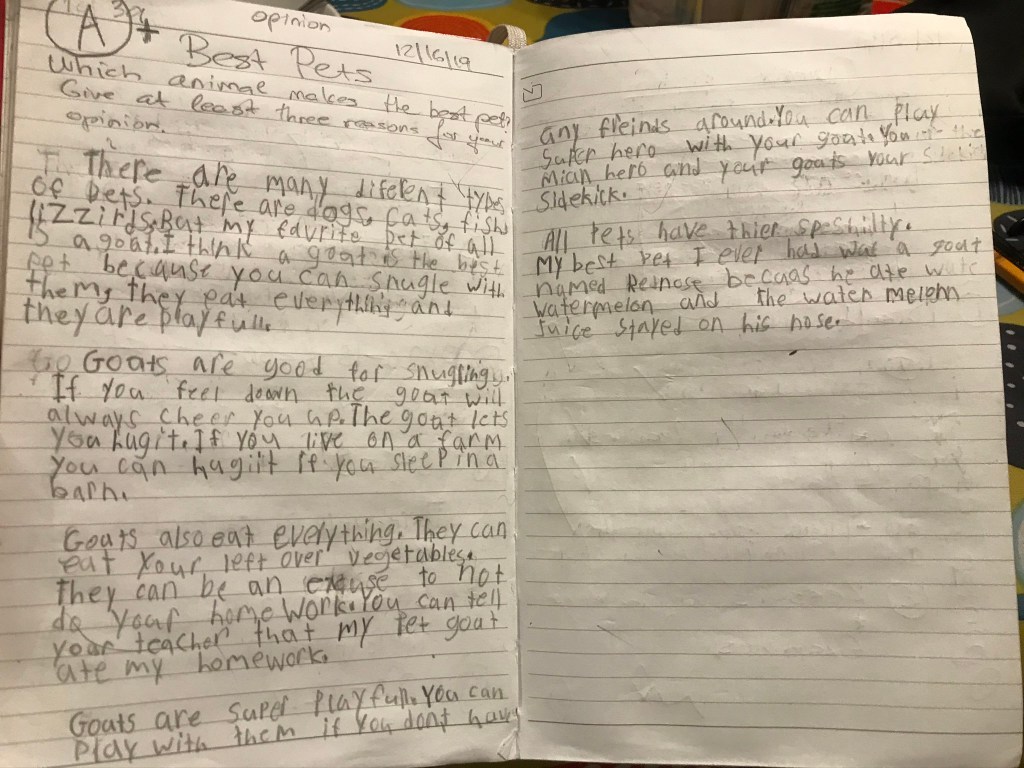 A+
opinion
12/16/19
Best Pets
Which animal makes the best pet?
Give at least three reasons for your
opinion.
There are many difent types
of pets. There are dogs, cats, fish,
lizzirds. But my favrite pet of all
is a goat. I think a goat is the best
pet because you can snugle with
them, they eat everything, and
they are playfull.
Goats are good for snuggling.
If you feel down the goat will
always cheer you up. The goat lets
you hug it. If you live on a farm
you can hug it if you sleep in a
barn.
Goats also eat everything. They can
eat your left over vegetables.
they can be an exuse to not
do your home work. You can tell
your teacher that my pet goat
ate my homework.
Goats are super playfull. You can
play with them if you dont have
any freinds around. You can play
super hero with your goat. You
mian hero and your goats your
sidekick.
All pets have thier speshilty.
My best pet I ever had was a goat
named Rednose becuas he ate
watermelon and the water melon
juice stayed on his nose.